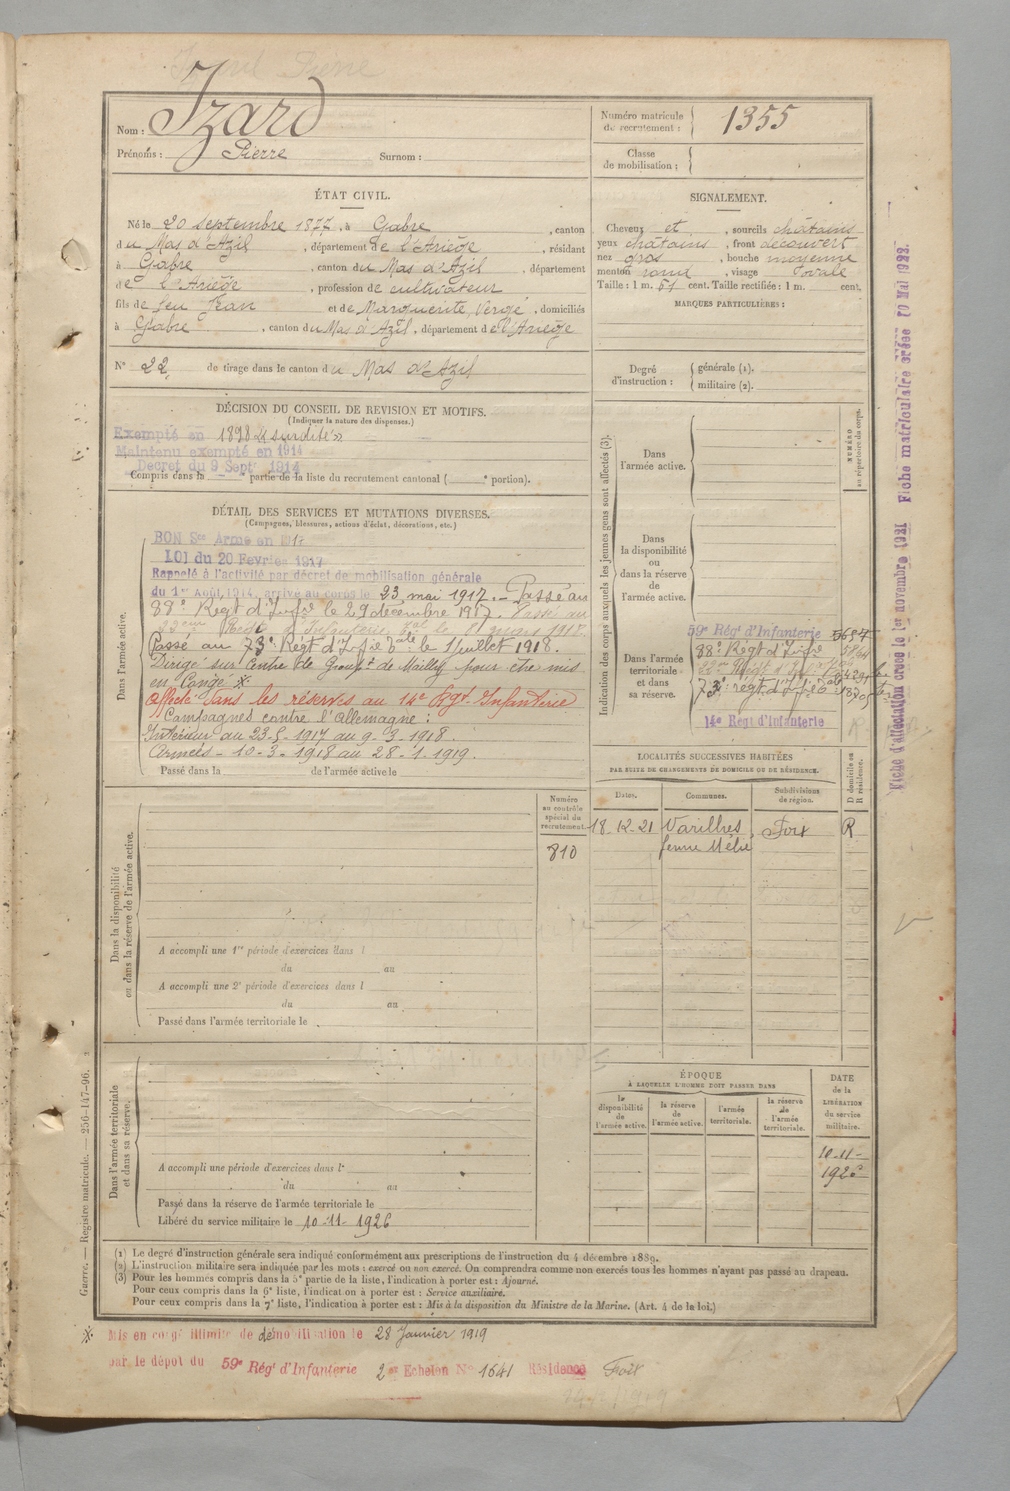 Nom : Izard
Prénoms : Pierre Surnom :
Numéro matricule
de recrutement : 1355
Classe
de mobilisation :
ÉTAT CIVIL.
Né le 20 septembre 1877, à Gabre, canton
du Mas d'Azil, département de l'Ariège, résidant
à Gabre, canton du Mas d'Azil, département
de l'Ariège, profession de cultivateur
fils de feu Jean et de Marguerite Vergé, domiciliés
à Gabre, canton du Mas d'Azil, département de l'Ariège
N° 22 de tirage dans le canton du Mas d'Azil
SIGNALEMENT.
Cheveux et, sourcils châtains
yeux châtains, front découvert
nez gros, bouche moyenne
menton rond, visage ovale
Taille : 1 m. 61 cent. Taille rectifiée : 1 m. cent.
MARQUES PARTICULIÈRES :
Degré
d'instruction :
générale (1).
militaire (2).
DÉCISION DU CONSEIL DE REVISION ET MOTIFS.
(Indiquer la nature des dispenses.)
Exempté en 1898 « surdité »
Maintenu exempté en 1914
Décret du 9 Sept 1914
Compris dans la e partie de la liste du recrutement cantonal ( e portion).
DÉTAIL DES SERVICES ET MUTATIONS DIVERSES.
(Campagnes, blessures, actions d'éclat, décorations, etc.)
Dans l'armée active.
BON Sce Armé en 1917
LOI du 20 Fevrier 1917
Rappelé à l'activité par décret de mobilisation générale
du 1er Août 1914, arrivé au corps le 23 mai 1917. - Passé au
88e Régt d'Infie le 29 décembre 1917. Passé au
23eme Régt d'Infanterie le 8 mars 1918.
Passé au 73e Régt d'Infie le 1 juillet 1918.
Dirigé sur Centre de Groupt de Mailly pour être mis
en Congé *.
Affecté dans les réserves au 14e Rgt Infanterie
Campagnes contre l'Allemagne :
Intérieur au 23-5-1917 au 9-3-1918.
Armées - 10-3-1918 au 28-1-1919.
Passé dans la de l'armée active le
Indication des corps auxquels les jeunes gens sont affectés (3).
NUMÉRO
au répertoire du corps.
Dans
l'armée active.
Dans
la disponibilité
ou
dans la réserve
de
l'armée active.
Dans l'armée
territoriale
et dans
sa réserve.
59e Régt d'Infanterie
88e Régt d'Infie
73e régt d'Infie
14e Régt d'Infanterie
LOCALITÉS SUCCESSIVES HABITÉES
PAR SUITE DE CHANGEMENTS DE DOMICILE OU DE RÉSIDENCE.
Dates. Communes. Subdivisions
de région. D domicile ou
R résidence.
18-12-21 Varilhes Foix R
Numéro
au contrôle
spécial du
recrutement.
810
Dans la disponibilité
ou dans la réserve de l'armée active.
A accompli une 1re période d'exercices dans l
du au
A accompli une 2e période d'exercices dans l
du au
Passé dans l'armée territoriale le
Dans l'armée territoriale
et dans sa réserve.
A accompli une période d'exercices dans l
du au
Passé dans la réserve de l'armée territoriale le
Libéré du service militaire le 10-11-1926
ÉPOQUE
À LAQUELLE L'HOMME DOIT PASSER DANS
la
disponibilité
de
l'armée active.
la réserve
de
l'armée active.
l'armée
territoriale.
la réserve
de
l'armée
territoriale.
DATE
de la
LIBÉRATION
du service
militaire.
10-11-
1926
(1) Le degré d'instruction générale sera indiqué conformément aux prescriptions de l'instruction du 4 décembre 1889.
(2) L'instruction militaire sera indiquée par les mots : exercé ou non exercé. On comprendra comme non exercés tous les hommes n'ayant pas passé au drapeau.
(3) Pour les hommes compris dans la 5e partie de la liste, l'indication à porter est : Ajourné.
Pour ceux compris dans la 6e liste, l'indication à porter est : Service auxiliaire.
Pour ceux compris dans la 7e liste, l'indication à porter est : Mis à la disposition du Ministre de la Marine. (Art. 4 de la loi.)
* Mis en congé illimité de démobilisation le 28 Janvier 1919
par le dépôt du 59e Régt d'Infanterie 2e Echelon N° 1641 Résidence Foix
Guerre. — Registre matricule. — 256-147-96.
Fiche d'affectation créée le 1er novembre 1921 Fiche matriculaire créée